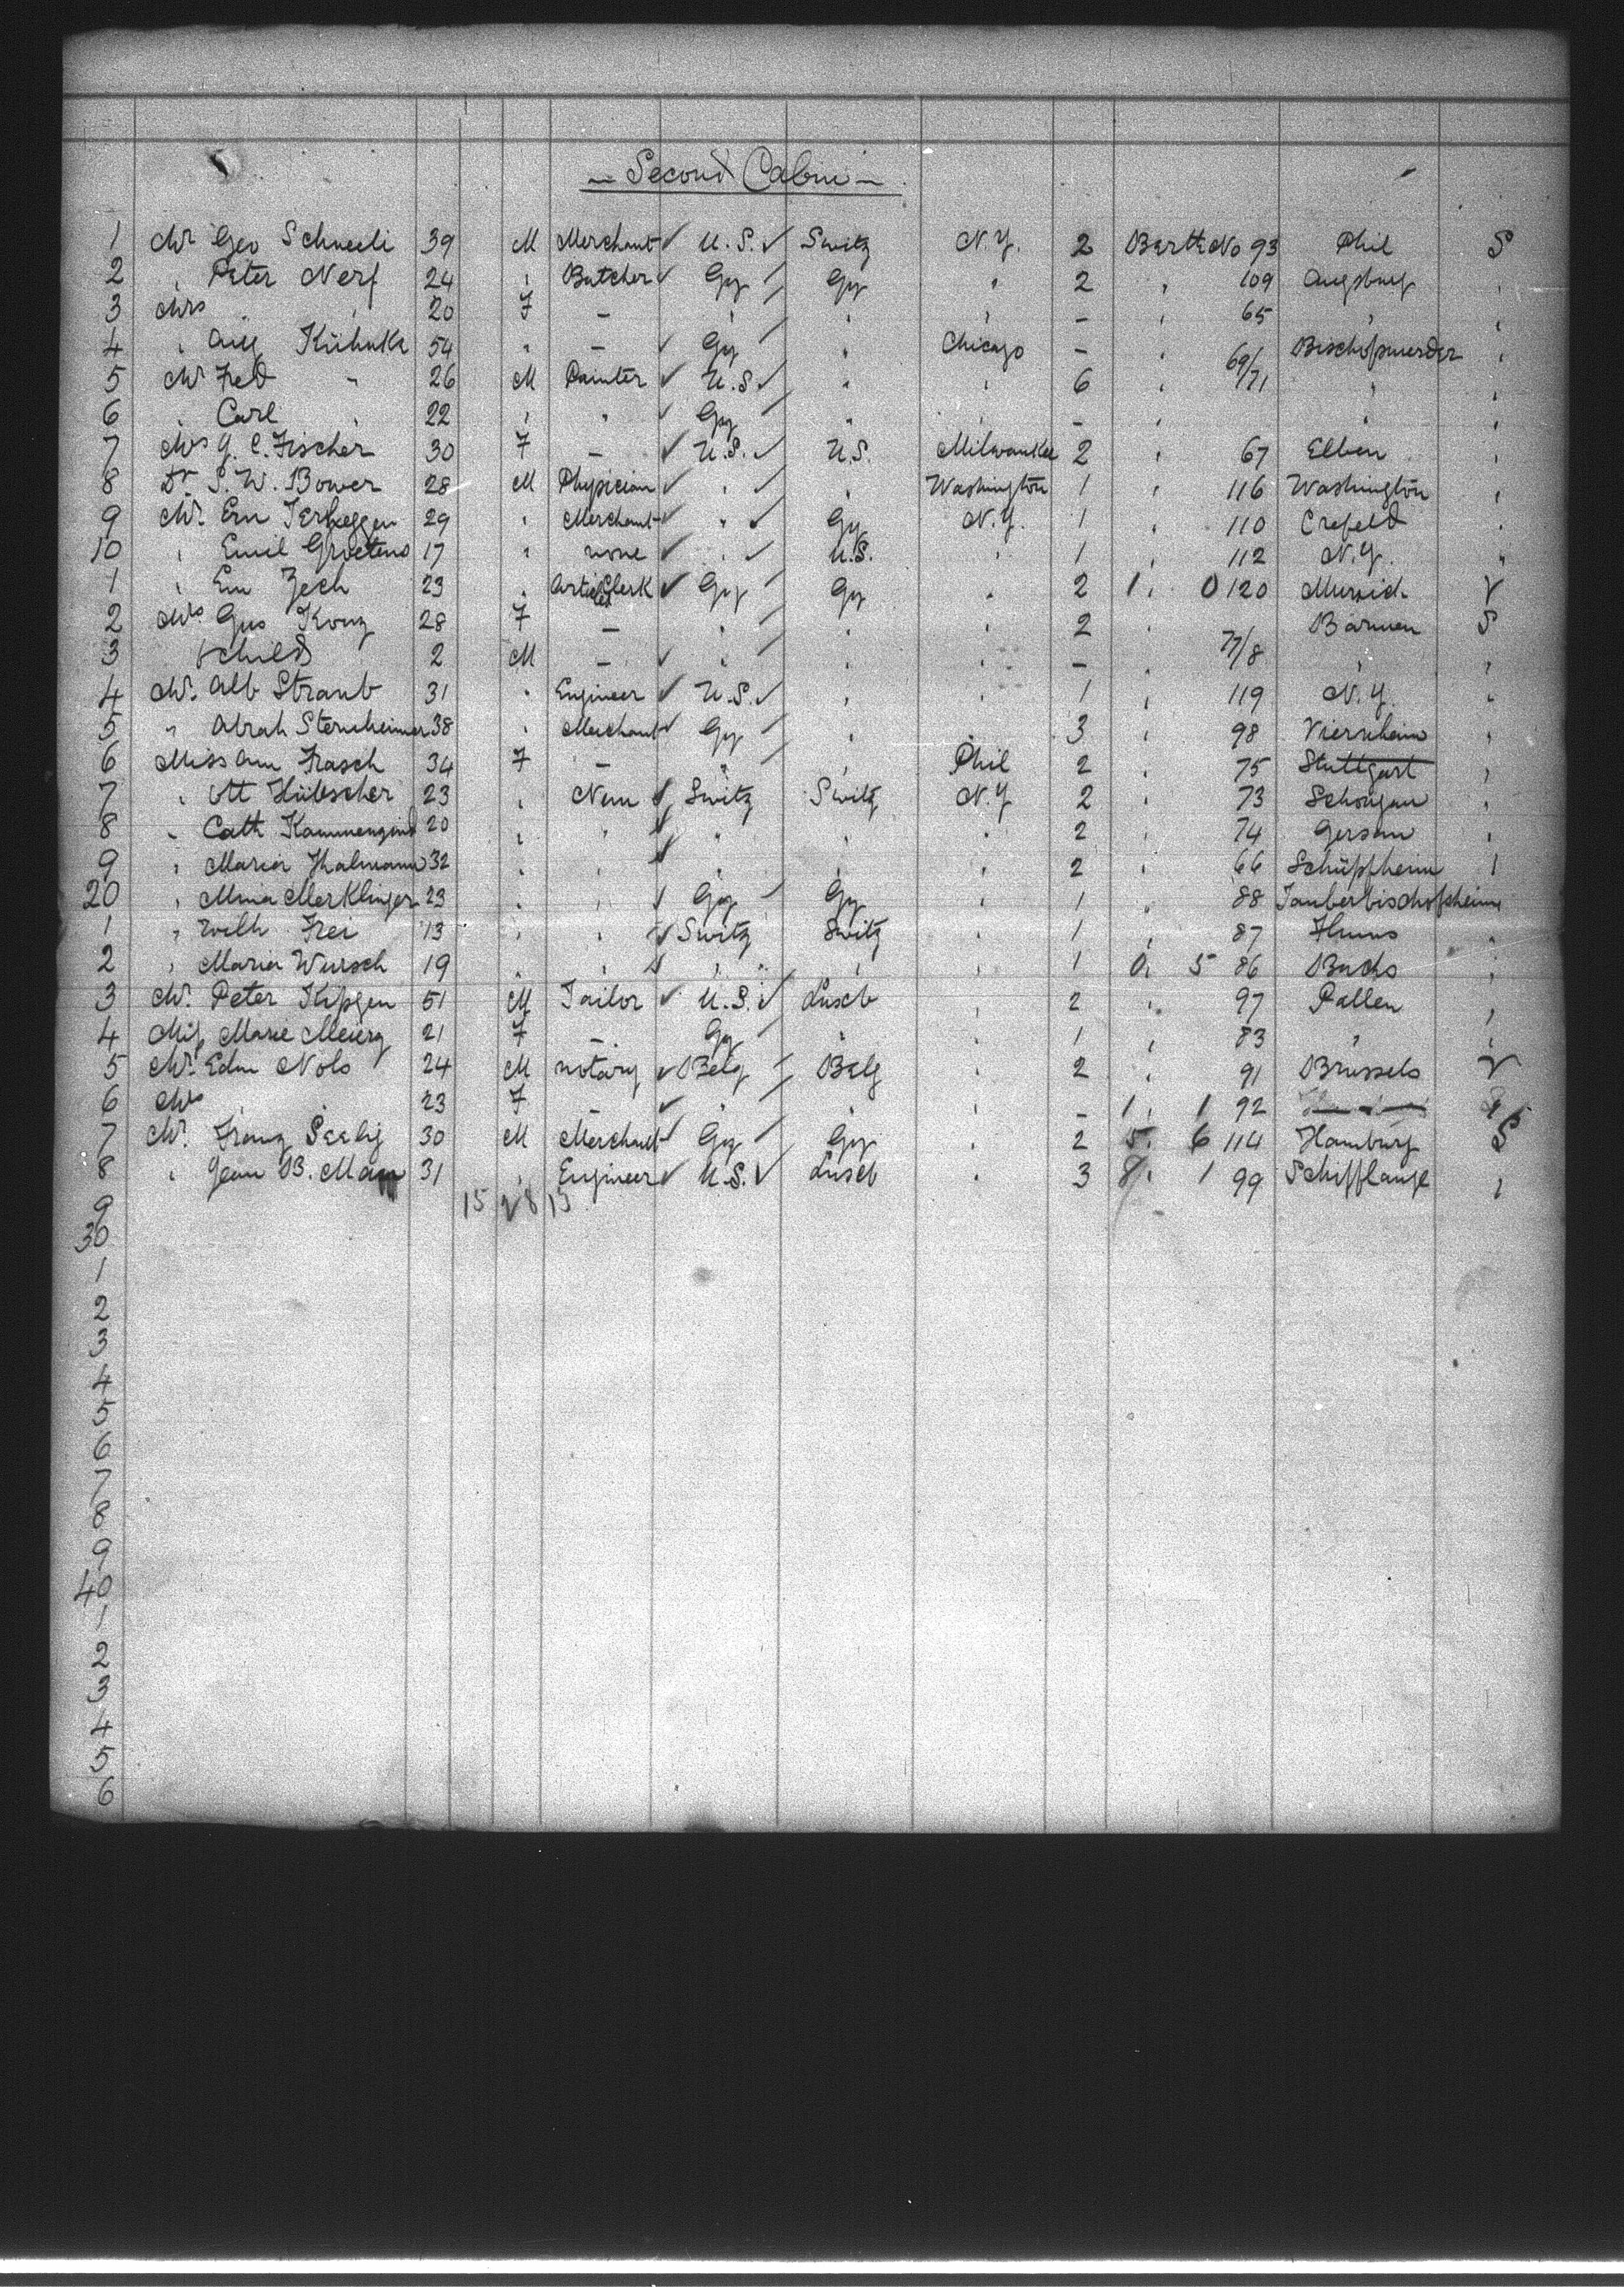 Second Cabin
1 Mr Geo Schneeli 39 M Merchant ✓ U.S. ✓ Switz N.Y. 2 Berth No 93 Phil S
2 " Peter Nerf 24 " Butcher ✓ Gy / Gy " 2 " 109 Augsburg "
3 Mrs " " 20 F — " / " " — " 65 " "
4 " Aug Kühnke 54 " — ✓ Gy / " Chicago — " Bischofswerder "
5 Mr Fred " 26 M Painter ✓ U.S. ✓ " " 6 " 69/71 " "
6 " Carl " 22 " " ✓ Gy / " " — " " "
7 Mrs G. C. Fischer 30 F — ✓ U.S. ✓ U.S. Milwaukee 2 " 67 Elben "
8 Dr S. W. Bower 28 M Physician ✓ " ✓ " Washington 1 " 116 Washington "
9 Mr. Ern Terheggen 29 " Merchant ✓ " ✓ Gy N.Y. 1 " 110 Crefeld "
10 " Emil Groetens 17 " none ✓ " ✓ U.S. " 1 " 112 N.Y. "
1 " Em Zech 23 " Articled Clerk ✓ Gy / Gy " 2 1 " 0 120 V
2 Mrs Gus Konz 28 F — " / " " 2 " Barmen S
3 " child 2 M — ✓ " / " " — " 77/8 " "
4 Mr. Alb Straub 31 " Engineer ✓ U.S. ✓ " " 1 " 119 N.Y. "
5 " Abrah Sternheimer 38 " Merchant ✓ Gy / " " 3 " 98 Viernheim "
6 Miss Ann Frasch 34 F — " " Phil 2 " 75 Stuttgart "
7 " Ott Hübscher 23 " Nun ✓ Switz Switz N.Y 2 " 73 "
8 " Cath Kammenzind 20 " " ✓ " " " 2 " 74 Gersau "
9 " Maria Thalmann 32 " " ✓ " " " 2 " 66 Schüpfheim "
20 " Mina Merklinger 23 " " ✓ Gy / Gy " 1 " 88 Tauberbischofsheim
1 " Wilh Frei 13 " " ✓ Switz Switz " 1 " 87 "
2 " Maria Wursch 19 " " ✓ " " " 1 0 " 5 86 Buchs "
3 Mr. Peter Kipgen 51 M Tailor ✓ U.S. ✓ Luxb " 2 " 97 Pallen "
4 Miss Marie Meierz 21 F — Gy / " " 1 " 83 " "
5 Mr. Edm Nols 24 M notary ✓ Belg / Belg " 2 " 91 Brussels V
6 Mrs " " 23 F — ✓ " / " " — 1 " 1 92
7 Mr. Franz Seelig 30 M Merchant Gy / Gy " 2 5 " 6 114 Hamburg S
8 " Jean B. Man 31 " Engineer ✓ U.S. ✓ Luxb " 3 8 " 1 99 Schifflange "
9 15 28 13
30
1
2
3
4
5
6
7
8
9
40
1
2
3
4
5
6